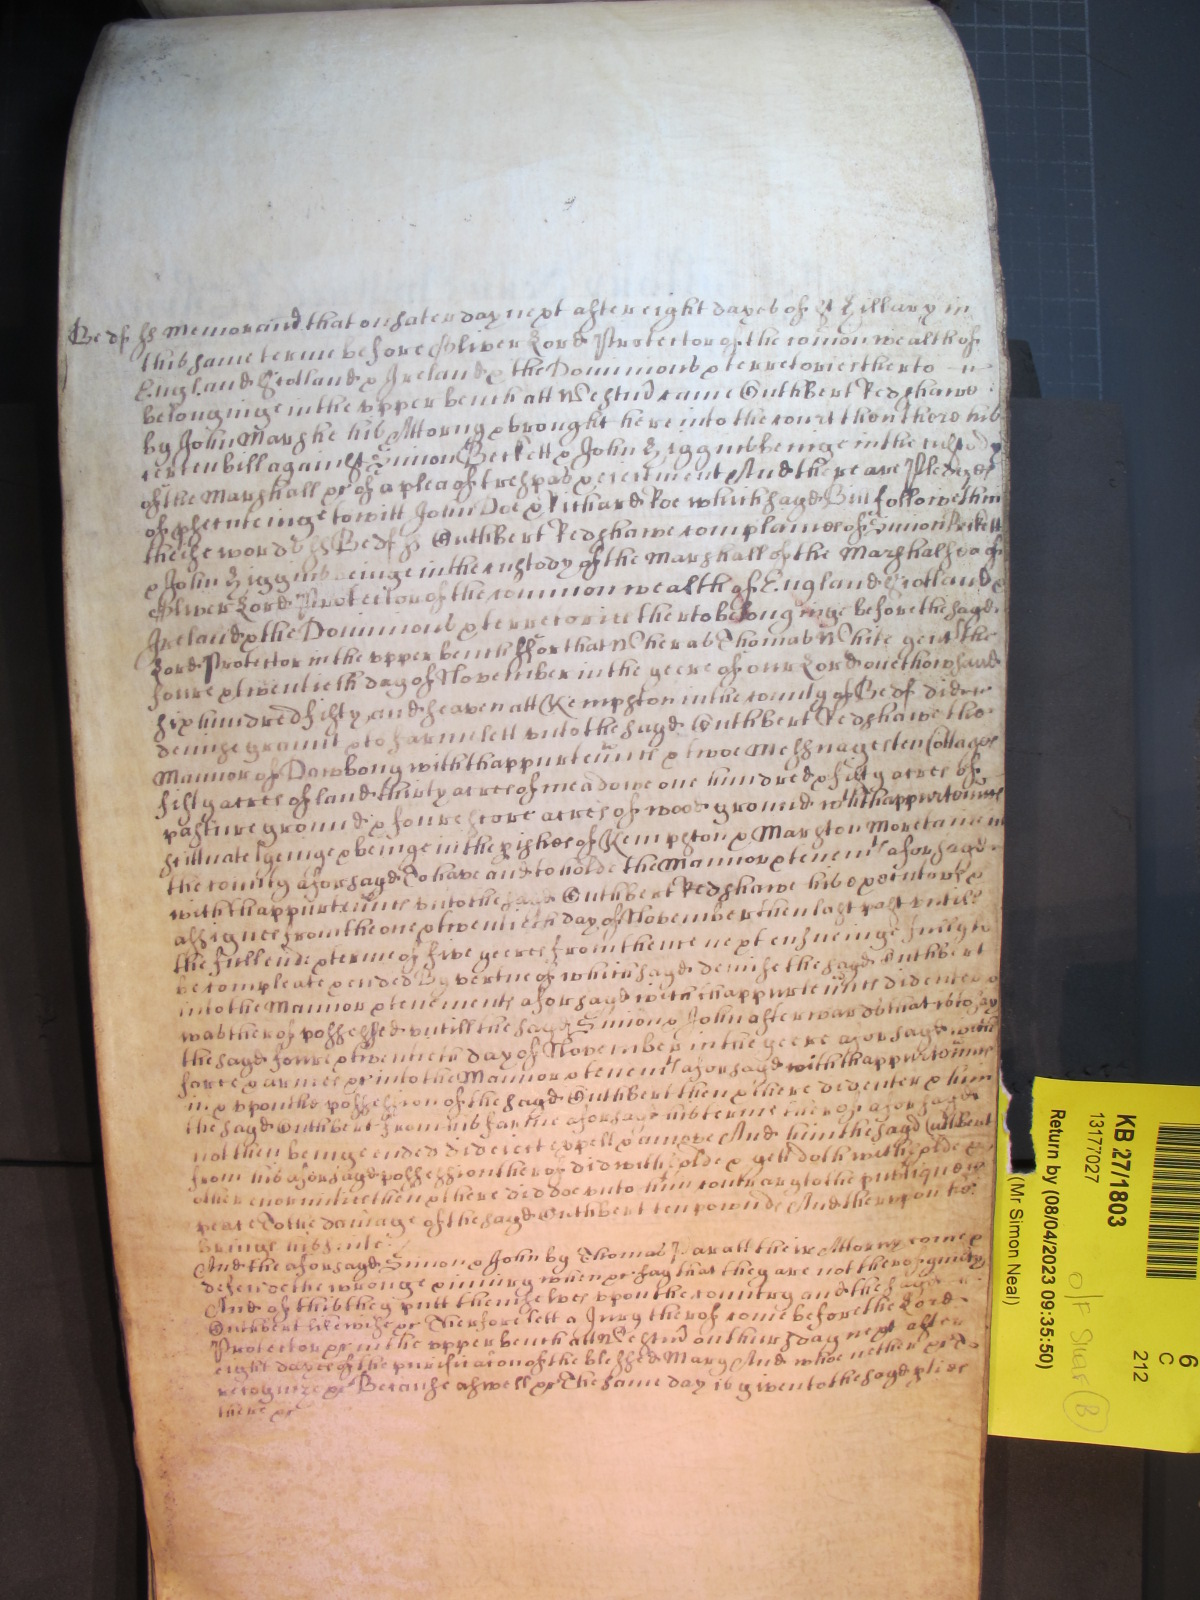 Bedf ss Memorand that on saterday next after eight dayes of St Hillary in
this same terme before Oliver Lord Protector of the comonwealth of
England Scotland & Ireland & the Dominions & terretories therto
belonginge in the upper bench att Westm came Cuthbert Redshawe
by John Marshe his Attorny & brought here into the court then there his
certen bill against Simon Beckett & John Higgins beinge in the custody
of the Marshall &c of a plea of trespas & eiectment And there are Pledges
of phecuteinge to witt John Doe & Richard Roe which sayd Bill followeth in
these words ss Bedf ss Cuthbert Redshawe complaines of Simon Beckett
& John Higgins beinge in the custody of the Marshall of the Marshalsea of
Oliver Lord Protector of the common wealth of England Scotland &
Ireland & the Dominions & terretories therto belonginge before the sayd
Lord Protector in the upper bench ffor that Wheras Thomas White gent the
foure & twentieth day of November in the yeere of our Lord one thowsand
six hundred fifty and seaven att Kempston in the county of Bedf did
demise graunt & to farme lett unto the sayd Cuthbert Redshawe the
Mannor of Dawbony with thappurtenns & twoe Messuages ten Cottages
fifty acres of land thirty acres of meadowe one hundred & fifty acres of
pasture ground & foure score acres of wood ground with thappurtennes
scittuate lyeinge & beinge in the pishes of Kempston & Marston Moretaine in
the county aforsayd To have and to holde the Mannor & tenemts aforsayd
with thappurtenns unto the sayd Cuthbert Redshawe his executors &
assignes from the one & twentieth day of November then last past untill
the full end & terme of five yeeres from thence next ensueinge fully to
be compleate & ended By vertue of which sayd demise the sayd Cuthbert
into the Mannor & tenements aforsayd with thappurtenns did enter &
was therof possessed untill the sayd Simon & John afterwards that is to say
the sayd foure & twentieth day of November in the yeere aforsayd with
force & armes &c into the Mannor & tenemts aforsayd with thappurtennes
in & upon the possession of the sayd Cuthbert then & there did enter & him
the sayd Cuthbert from his farme aforsayd his terme therof aforsayd
not then beinge ended did eiect expell & amove And him the sayd Cuthbert
from his aforsayd possession therof did withholde & yett doth withholde &
other enormities then & there did doe unto him contrary to the publique
peace To the damage of the sayd Cuthbert ten pownds And therupon he
brings his suite
And the aforsayd Simon & John by Thomas their Attorny come &
defende the wronge & iniury when &c say that they are not therof guilty
And of this they putt themselves upon the country and the sayd
Cuthbert likewise &c Therfore lett a Jury therof come before the Lord
Protector &c in the upper bench att Westm on thursday next after
eight dayes of the purificaton of the blessed Mary And whoe nether &c To
recognize &c Because aswell &c The same day is given to the sayd pties
there &c
KB 27/1803
13177027
Return by (08/04/2023 09:35:50)
(Mr Simon Neal)
6
C
212
O/F Staff (B)